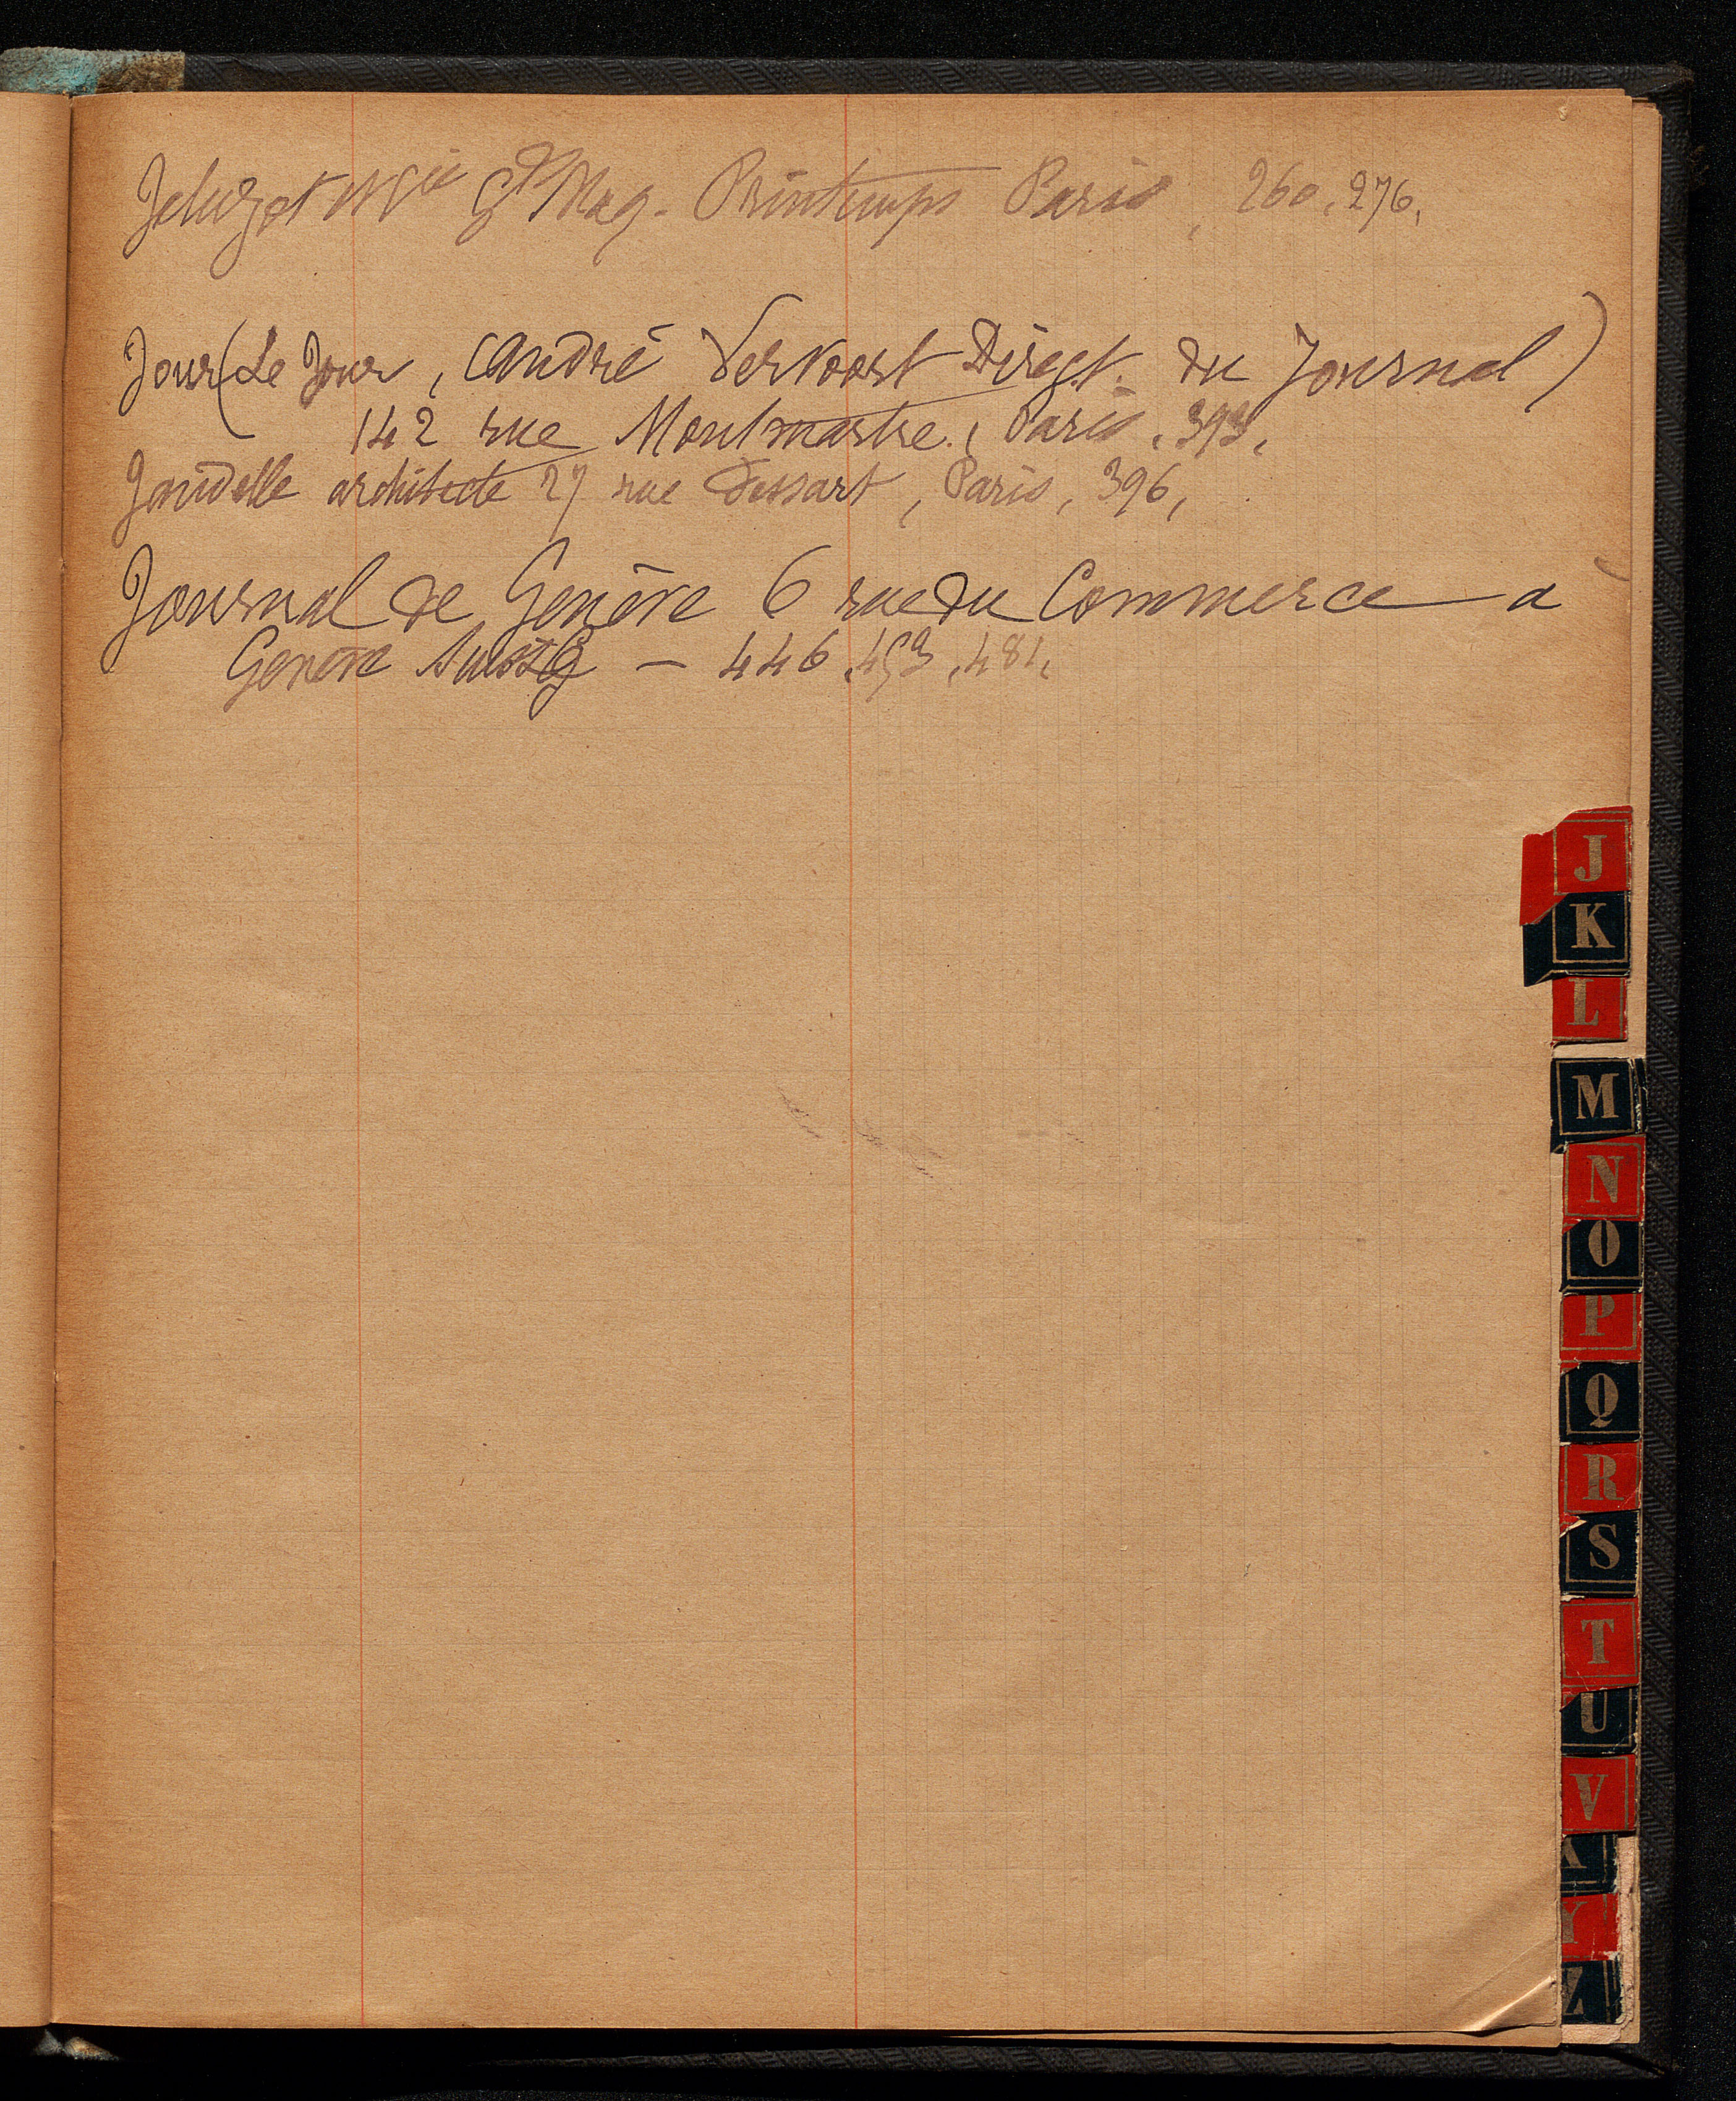 Jaluzot et Cie Gds Mag. Printemps Paris, 260, 276,
Jour (Le Jour, André Vervoort Direct. du Journal)
142 rue Montmartre, Paris, 393,
architecte 27 rue Dessart, Paris, 396,
Journal de Genève 6 rue du Commerce à
Genève Suisse — 446, 453, 481,
J
K
L
M
N
O
P
Q
R
S
T
U
V
X
Y
Z